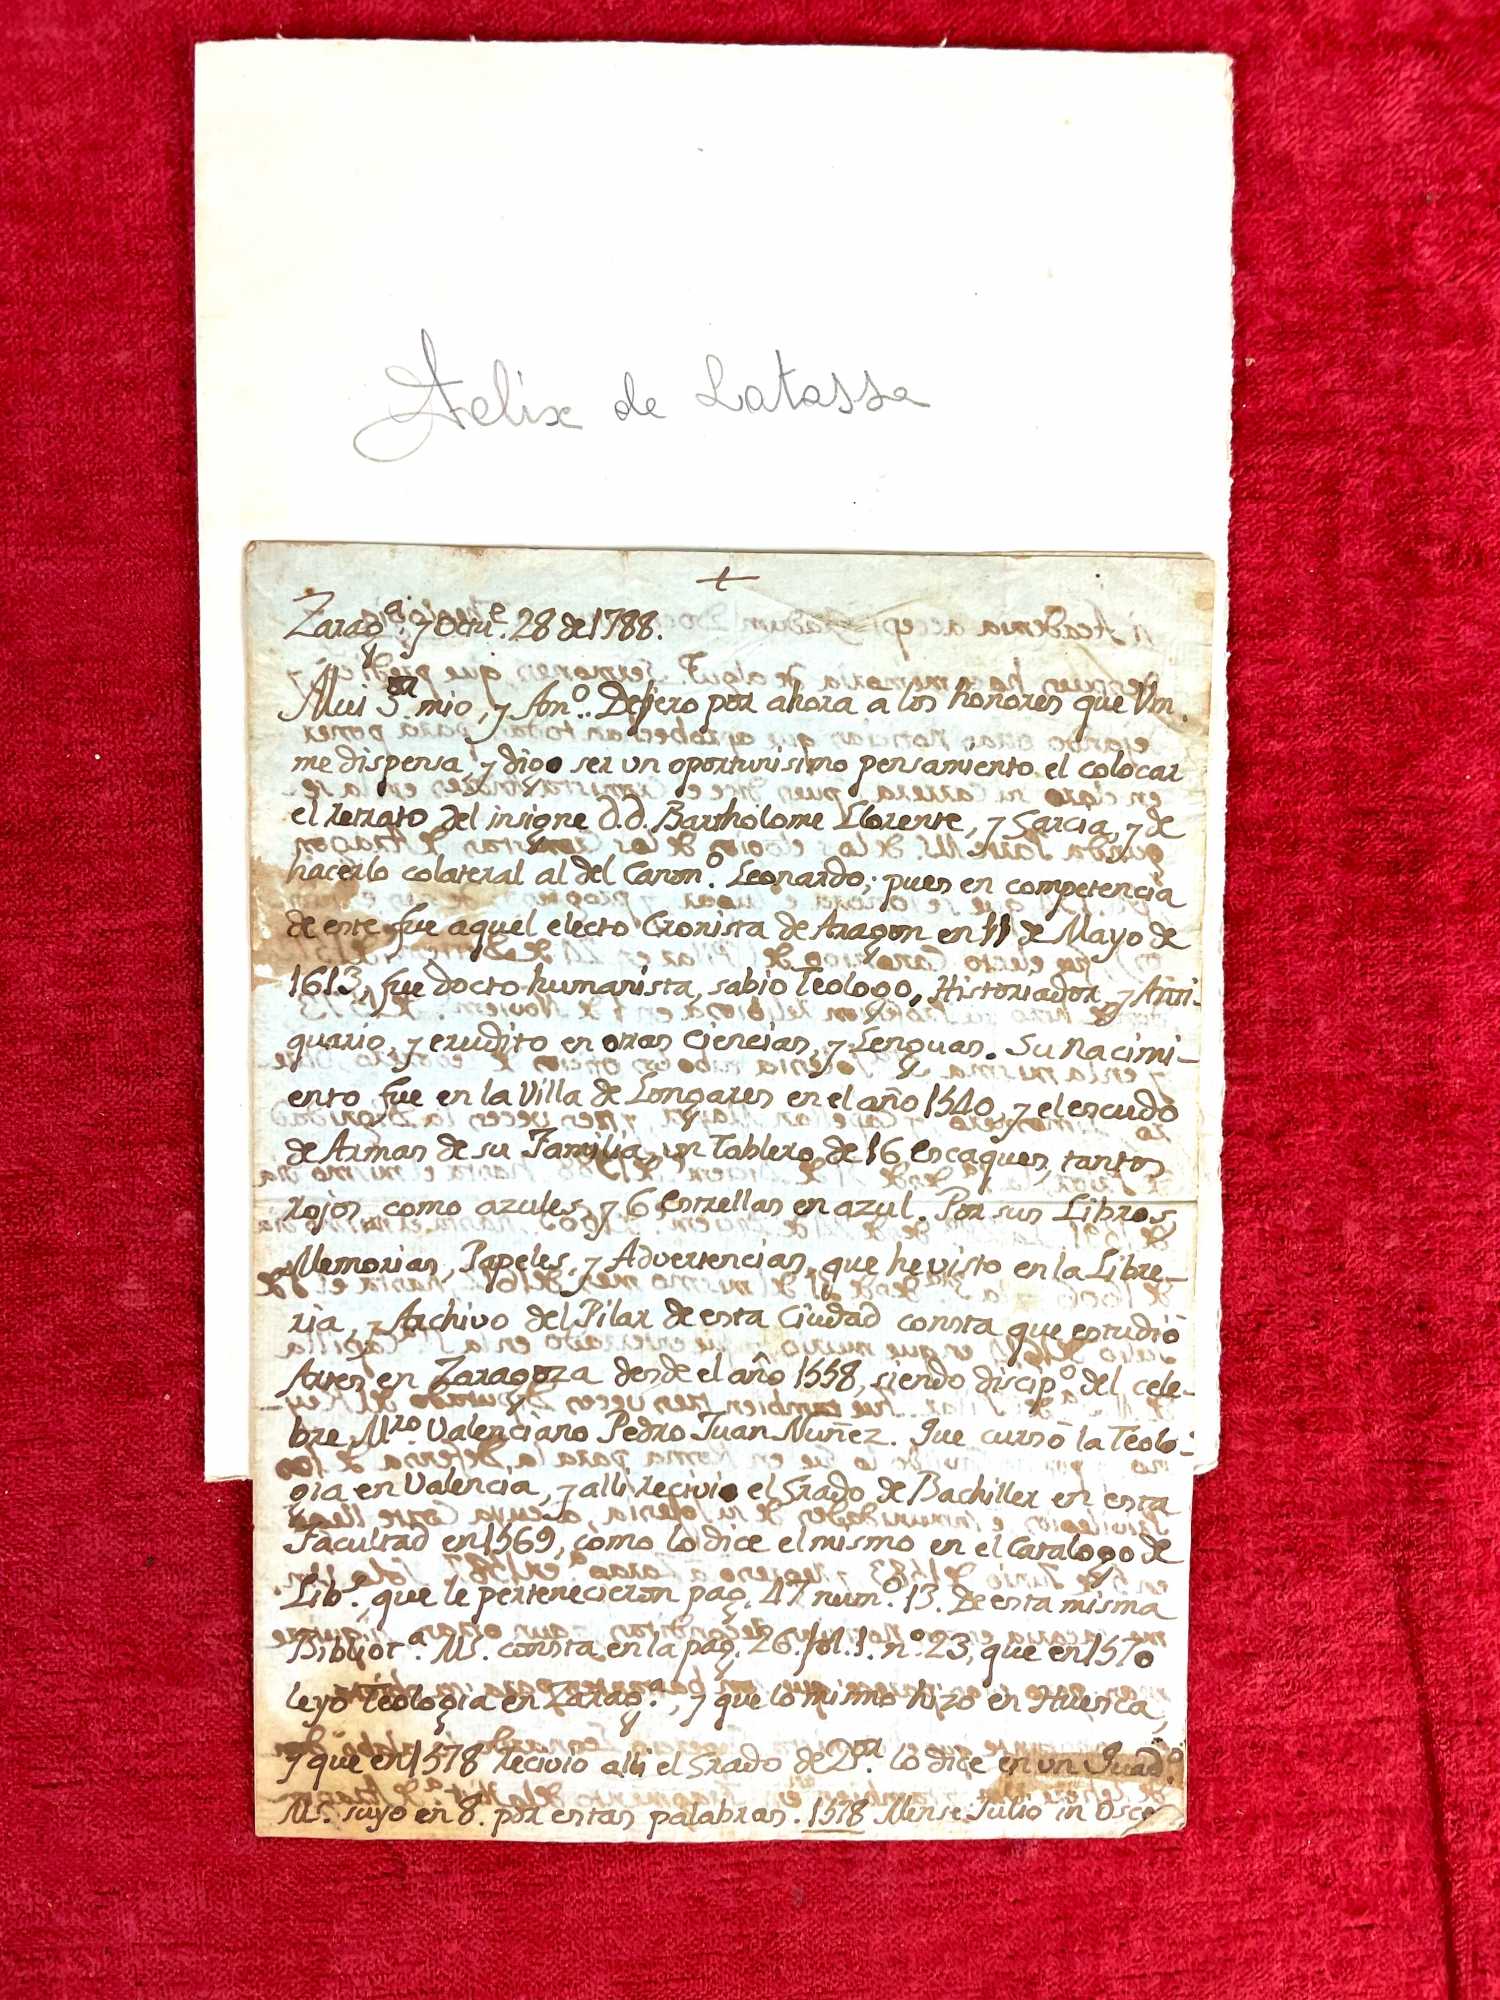 Felix de Latassa
+
Zarag.ª y Octu.e 28 de 1788.
Mui S.or mio, y Am.º Defiero por ahora a los honores que Vm.
me dispensa y digo ser un oportunisimo pensamiento el colocar
el retrato del insigne D.D. Bartholome Llorente, y Garcia, y de
hacerlo colateral al del Canon.º Leonardo; pues en competencia
de este fue aquel electo Cronista de Aragon en 11 de Mayo de
1613, fue docto humanista, sabio Teologo, Historiador, y Anti-
quario, y erudito en otras Ciencias, y Lenguas. Su Nacimi-
ento fue en la Villa de Longares en el año 1540, y el escudo
de Armas de su Familia, un Tablero de 16 Escaques, tantos
rojos, como azules, y 6 Estrellas en azul. Por sus Libros,
Memorias, Papeles, y Advertencias, que he visto en la Libre-
ria, y Archivo del Pilar de esta Ciudad consta que estudió
Artes en Zaragoza desde el año 1558, siendo discip.º del cele-
bre M.ro Valenciano Pedro Juan Nuñez. Que cursó la Teolo-
gia en Valencia, y alli recivio el Grado de Bachiller en esta
Facultad en 1569, como lo dice el mismo en el Catalogo de
Lib.s que le pertenecieron pag. 47 num.º 13. De esta misma
Bibliot.ª Ms. consta en la pag. 26. fol. 1. n.º 23, que en 1570
leyó Teologia en Zarag.ª, y que lo mismo hizo en Huesca,
y que en 1578 recivio alli el Grado de D.or lo dice en un Quad.º
Ms. suyo en 8. por estas palabras. 1578 Mense Julio in Osce